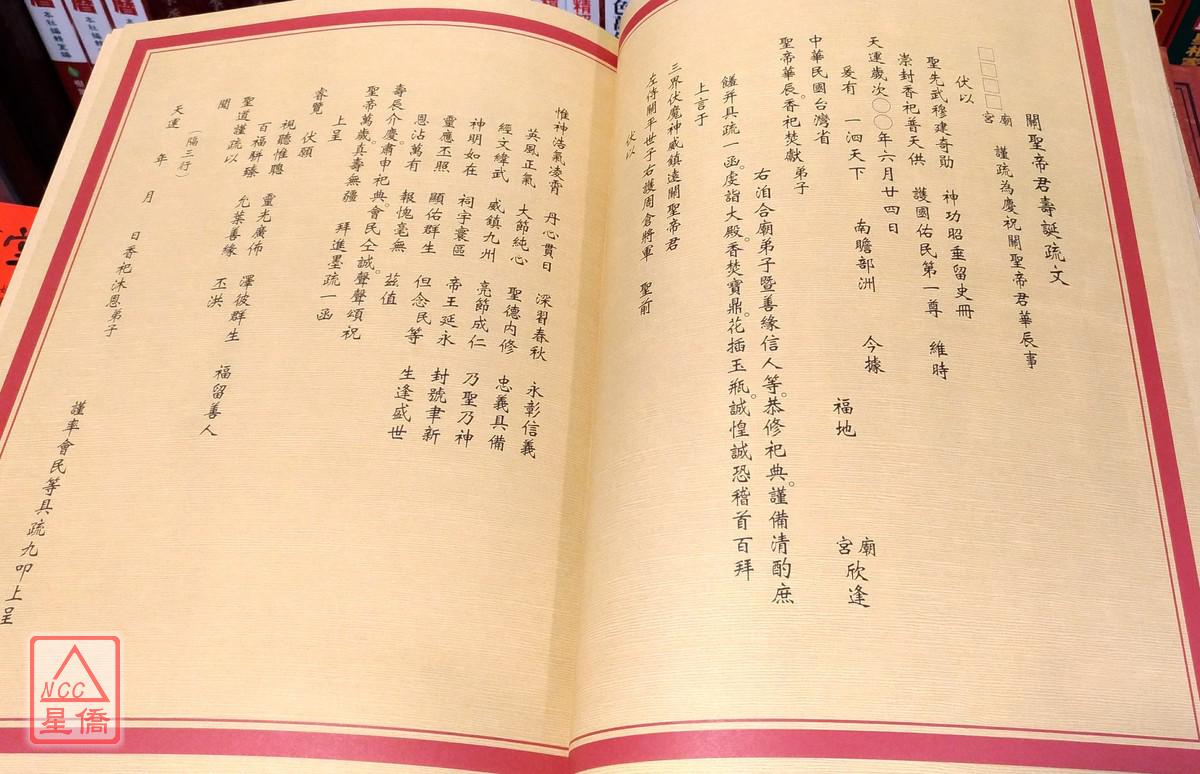 關聖帝君壽誕疏文
□□□□廟宮　謹疏為慶祝關聖帝君華辰事
伏以
聖先武穆建奇勛　神功昭垂留史冊
崇封香祀普天供　護國佑民第一尊　維時
天運歲次○○年六月廿四日
爰有　一泗天下　南瞻部洲　今據
中華民國台灣省　福地　廟宮欣逢
聖帝華辰。香祀焚獻弟子
右洎合廟弟子暨善緣信人等。恭修祀典。謹備清酌庶
饈并具疏一函。虔詣大殿。香焚寶鼎。花插玉瓶。誠惶誠恐稽首百拜
上言于
三界伏魔神威鎮遠關聖帝君
左侍關平世子右護周倉將軍　聖前
伏以
惟神浩氣凌霄　丹心貫日　深習春秋　永彰信義
英風正氣　大節純心　聖德內修　忠義具備
經文緯武　威鎮九州　亮節成仁　乃聖乃神
神明如在　祠宇寰區　帝王延永　封號聿新
靈應丕照　顯佑群生　但念民等　生逢盛世
恩沾萬有　報愧毫無　茲值
壽辰介慶。肅申祀典。會民仝誠。聲聲頌祝
聖帝萬歲。真壽無疆　拜進墨疏一函
上呈
睿覽　伏願
視聽惟聰　靈光廣佈　澤彼群生　福留善人
百福駢臻　允葉善緣　丕洪
聖道謹疏以
聞
（隔三行）
天運　年　月　日香祀沐恩弟子
謹率會民等具疏九叩上呈
NCC
星僑
本社編輯室編